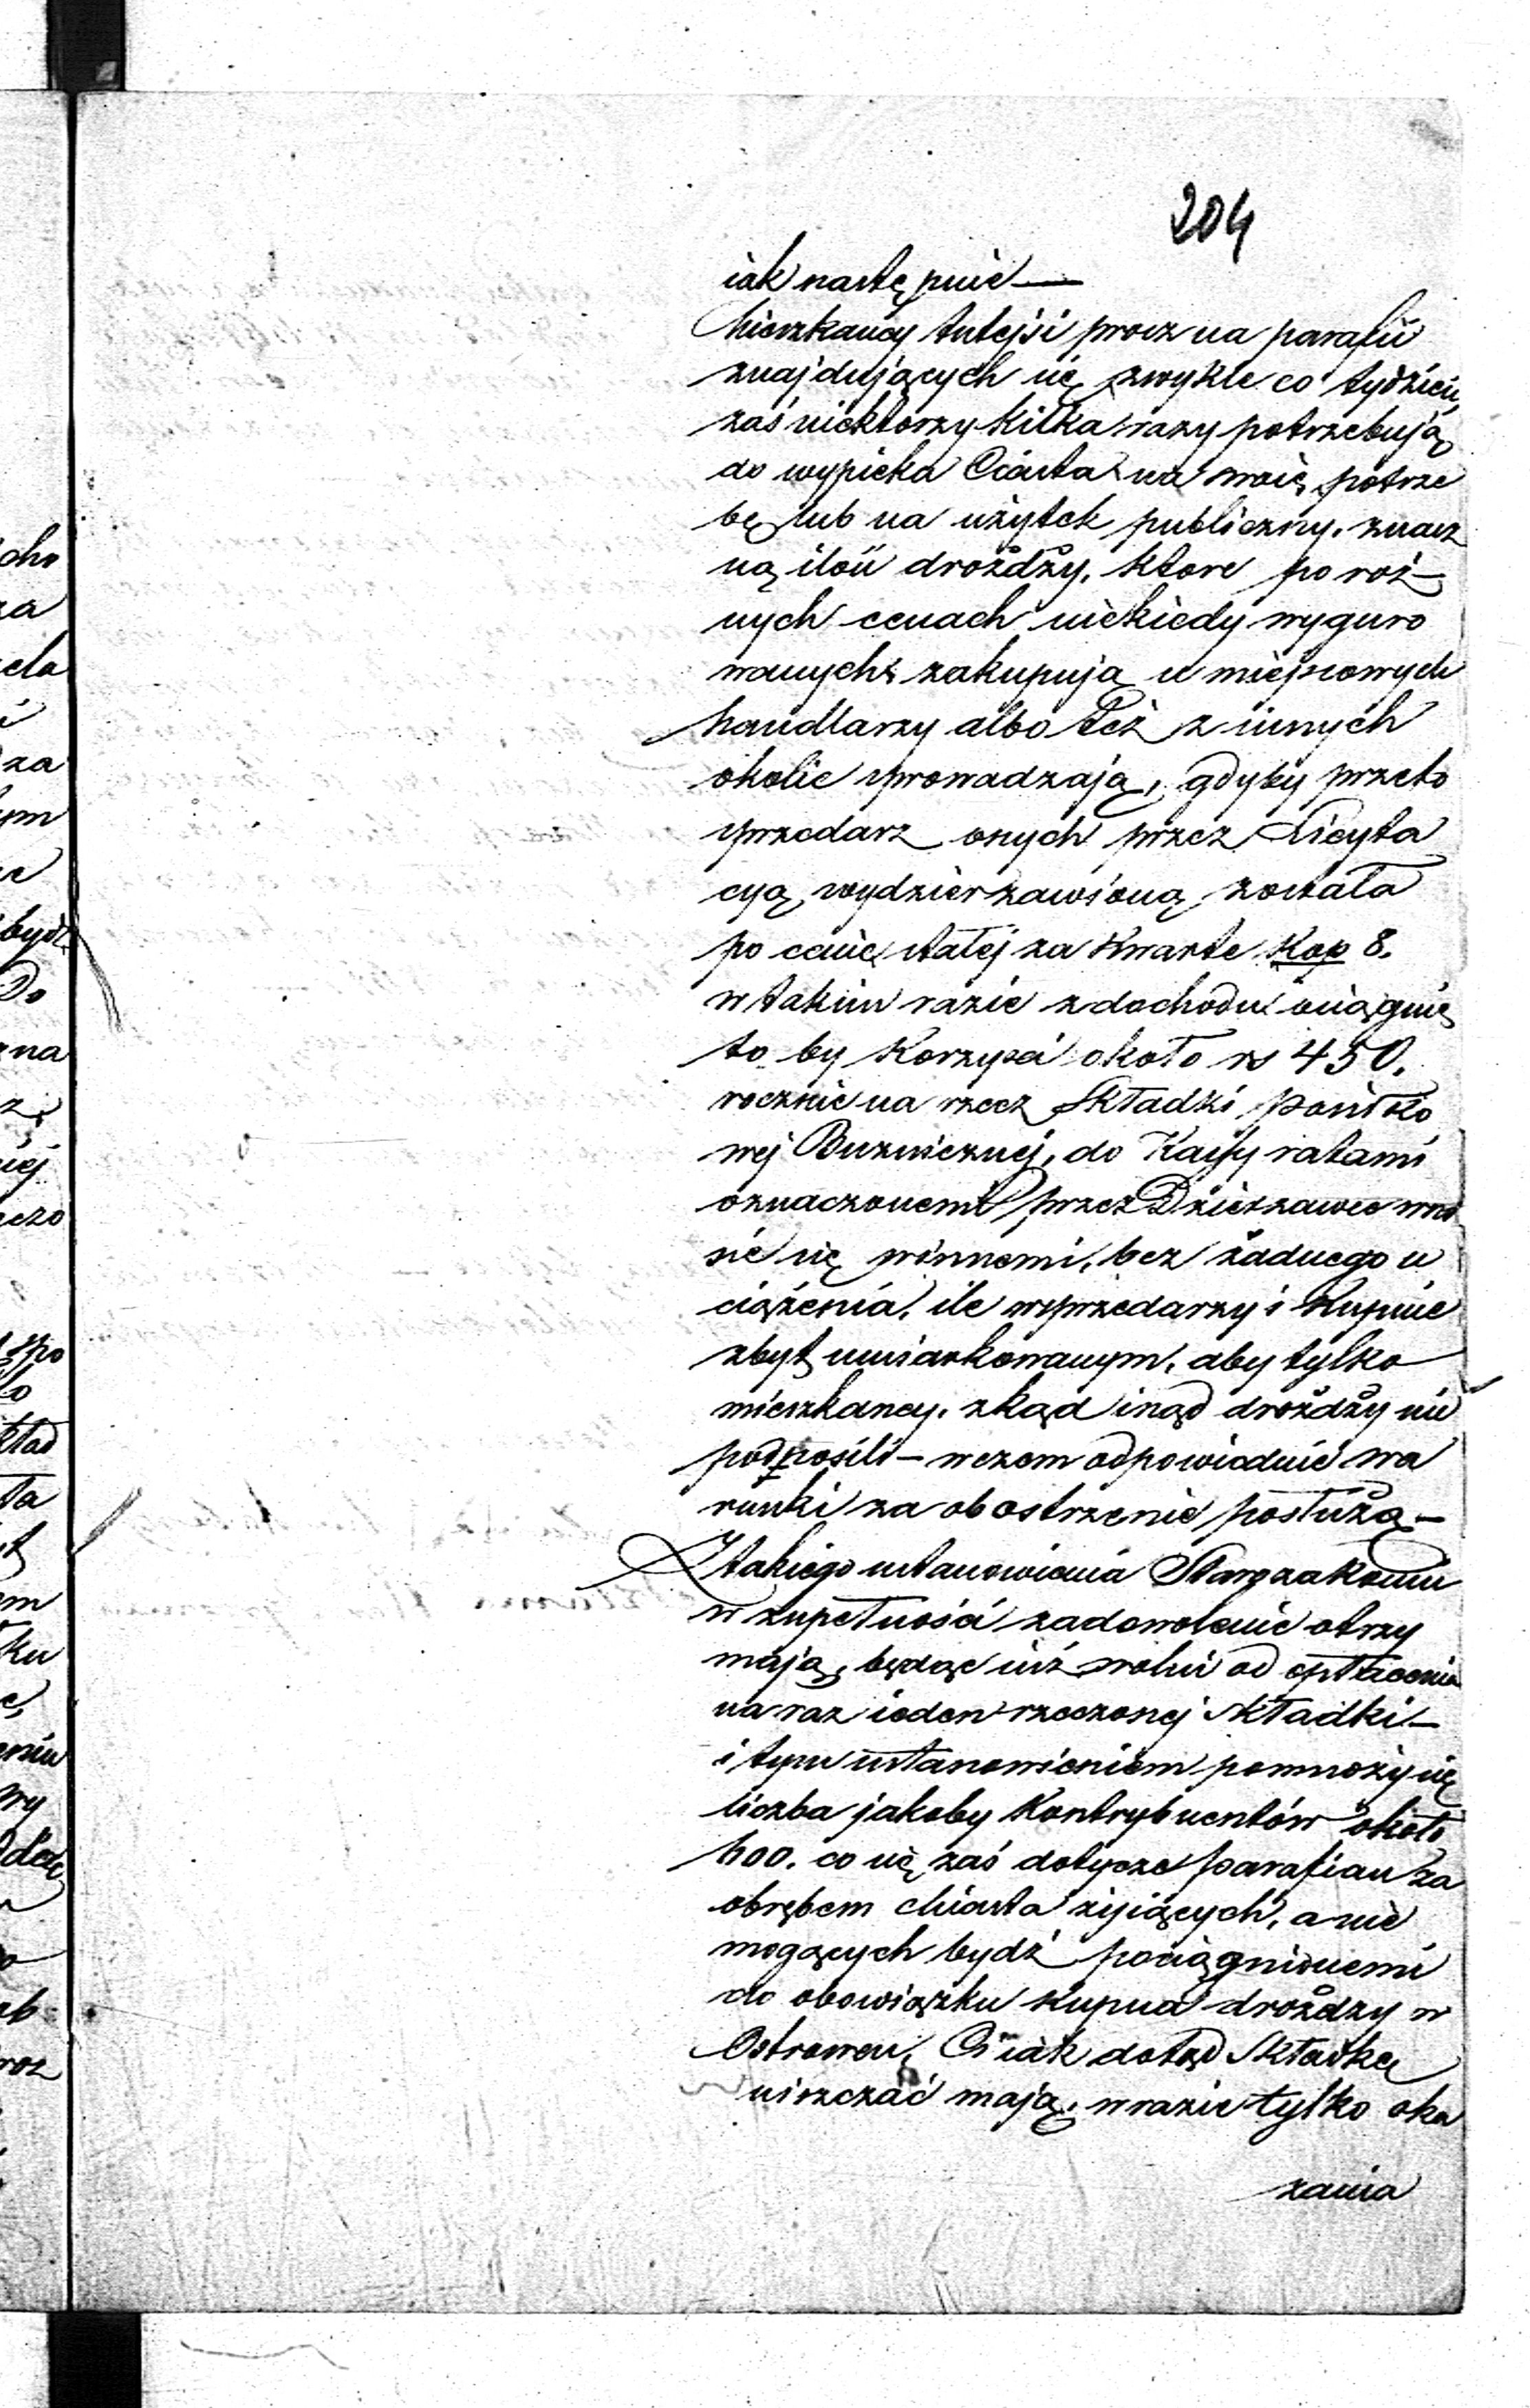 204
iak następuie —
Mieszkancy tutejsi procz na parafii
znajdujących się, zwykle co tydzień,
zaś niektorzy kilka razy potrzebują
do wypieka Ciasta na swoię potrze
bę lub na użytek publiczny, znacz
ną ilość drożdży, ktore po roż
nych cenach niekiedy wyguro
wanych zakupują u miejscowych
handlarzy albo też z innych
okolic sprowadzają, gdyby przeto
sprzedarz onych przez Licyta
cyą wydzierzawioną została
po cenie stałej za Kwarte Kop 8.
w takim razie z dochodu osiągnię
to by Korzyści około rs 450.
rocznie na rzecz Składki
wej Bużniczney, do Kassy ratami
oznaczonemi przez Dzierzawce wno
sić się winnemi, bez żadnego u
ciążenia, ile w sprzedarzy i Kupnie
zbyt umiarkowanym, aby tylko
mieszkancy, zkąd inąd drożdży nie
podnosili — w czem odpowiednie wa
runki za obostrzenie posłużą —
Z takiego ustanowienia Starozakonni
w zupełności zadowolenie otrzy
mają, będąc iuż wolni od opłacenia
na raz ieden rzeczonej składki —
i tym ustanowieniem pomnoży się
liczba jakoby Kontrybuentów około
600. co się zaś dotycze parafian za
obrębem Miasta żyiących, a nie
mogących bydź pociągnionemi
do obowiązku kupna drożdży w
Ostrowcu, Ci iak dotąd Składkę
uiszczać mają, w razie tylko oka
zania